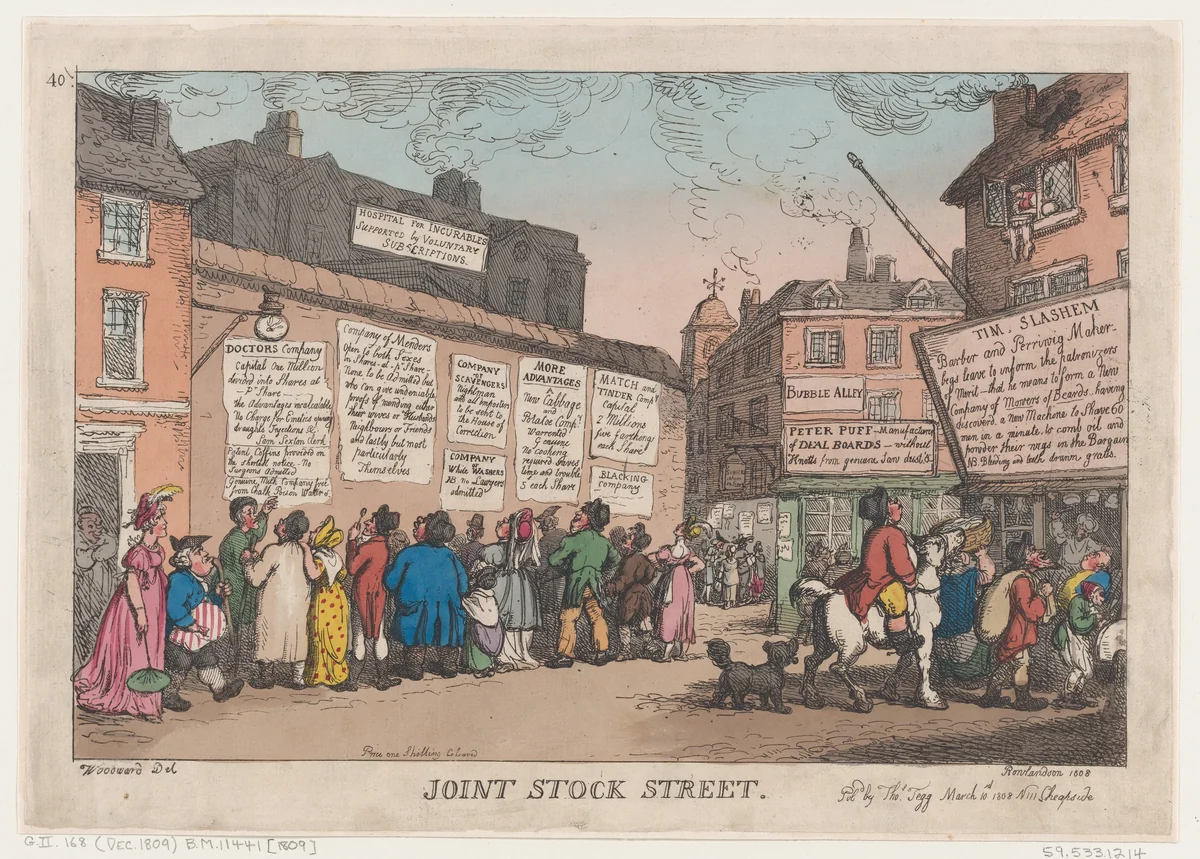 40
HOSPITAL for INCURABLES
Supported by Voluntary
SUBSCRIPTIONS.
DOCTORS Company
Capital One Million
devided into Shares at
Pr Share
the Advantages incalculable
No Charge for Emetics
draughts Injections &c
Sam Sexton Clerk
Patent Coffins provided on
the shortest notice - No
Surgeons Admitted
Genuine Milk Company free
from Chalk Poison Water &
Company of Menders
Open to both Sexes
in Shares - at - Pr Share -
None to be Admitted but
who can give undeniable
proofs of mending either
their wives or Husbands
Neighbours or Friends
and lastly but most
particularly
Themselves
COMPANY
of
SCAVENGERS
Nightmen
with all Importers
to be sent to
the House of
Correction
COMPANY
White Washers
NB. no Lawyers
admitted
MORE
ADVANTAGES
New Cabbage
and
Potatoe Compy
Warrented
Genuine
no Cooking
required saves
time and trouble
5 each Share
MATCH and
TINDER Compy
Capital
2 Millions
five farthings
each Share
BLACKING
Company
BUBBLE ALLEY
PETER PUFF - Manufacturer
of DEAL BOARDS - without
Knotts from genuine Saw dust &
TIM. SLASHEM
Barber and Perriwig Maker -
begs leave to inform the patronizers
of Merit - that he means to form a New
Company of Mowers of Beards, having
discoverd, a New Machine to Shave 60
men in a minute, to comb oil and
powder their wigs in the Bargain
NB. Bleeding and teeth drawn gratis.
Price one Shilling Coloured
Woodward Del
Rowlandson 1808
JOINT STOCK STREET.
Pubd by Thos Tegg March 10d 1808 N111 Cheapside
G.II. 168 (DEC. 1809) B.M.11441 [1809]
59.533.1214